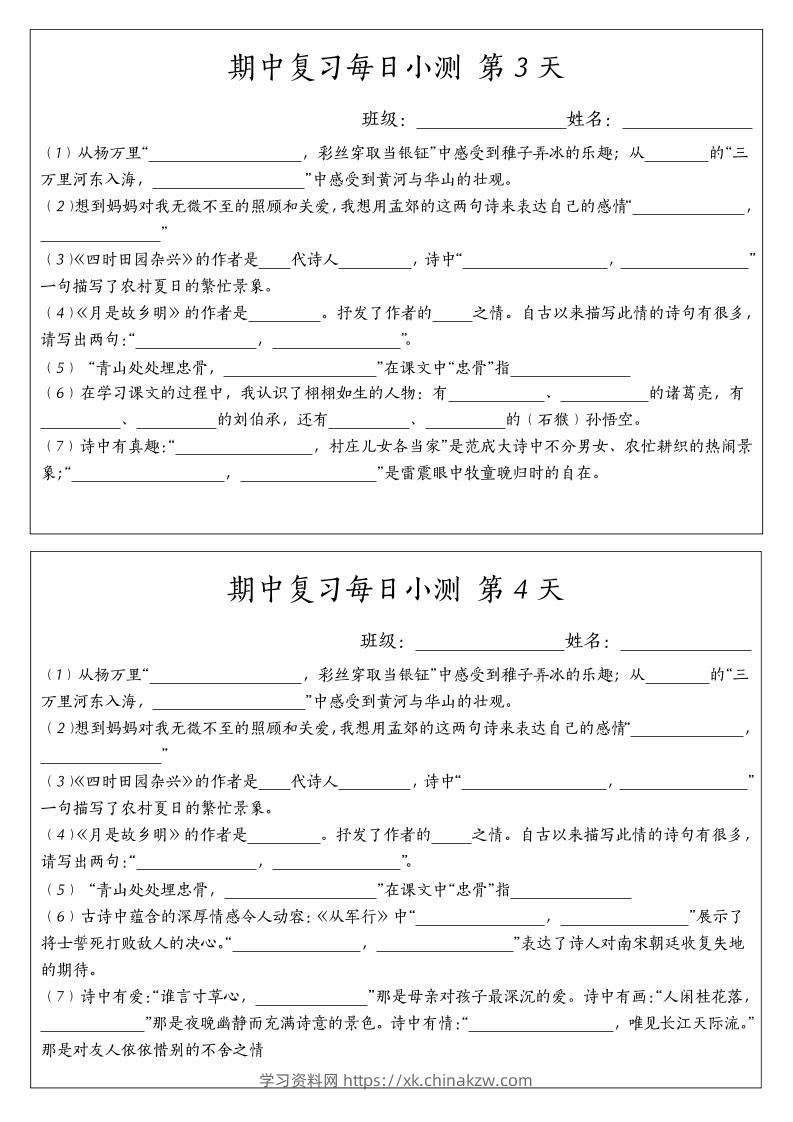 期中复习每日小测 第 3 天
班级：______________姓名：____________
（1）从杨万里“______________，彩丝穿取当银钲”中感受到稚子弄冰的乐趣；从______的“三
万里河东入海，______________”中感受到黄河与华山的壮观。
（2）想到妈妈对我无微不至的照顾和关爱，我想用孟郊的这两句诗来表达自己的感情“____________，
____________”
（3）《四时田园杂兴》的作者是____代诗人________，诗中“______________，______________”
一句描写了农村夏日的繁忙景象。
（4）《月是故乡明》的作者是________。抒发了作者的____之情。自古以来描写此情的诗句有很多，
请写出两句：“____________，____________”。
（5）“青山处处埋忠骨，______________”在课文中“忠骨”指____________
（6）在学习课文的过程中，我认识了栩栩如生的人物：有________、________的诸葛亮，有
________、________的刘伯承，还有________、________的（石猴）孙悟空。
（7）诗中有真趣：“______________，村庄儿女各当家”是范成大诗中不分男女、农忙耕织的热闹景
象；“______________，______________”是雷震眼中牧童晚归时的自在。
期中复习每日小测 第 4 天
班级：______________姓名：____________
（1）从杨万里“______________，彩丝穿取当银钲”中感受到稚子弄冰的乐趣；从______的“三
万里河东入海，______________”中感受到黄河与华山的壮观。
（2）想到妈妈对我无微不至的照顾和关爱，我想用孟郊的这两句诗来表达自己的感情“____________，
____________”
（3）《四时田园杂兴》的作者是____代诗人________，诗中“______________，______________”
一句描写了农村夏日的繁忙景象。
（4）《月是故乡明》的作者是________。抒发了作者的____之情。自古以来描写此情的诗句有很多，
请写出两句：“____________，____________”。
（5）“青山处处埋忠骨，______________”在课文中“忠骨”指____________
（6）古诗中蕴含的深厚情感令人动容：《从军行》中“____________，____________”展示了
将士誓死打败敌人的决心。“____________，______________”表达了诗人对南宋朝廷收复失地
的期待。
（7）诗中有爱：“谁言寸草心，____________”那是母亲对孩子最深沉的爱。诗中有画：“人闲桂花落，
__________”那是夜晚幽静而充满诗意的景色。诗中有情：“______________，唯见长江天际流。”
那是对友人依依惜别的不舍之情
学习资料网 https://xk.chinakzw.com